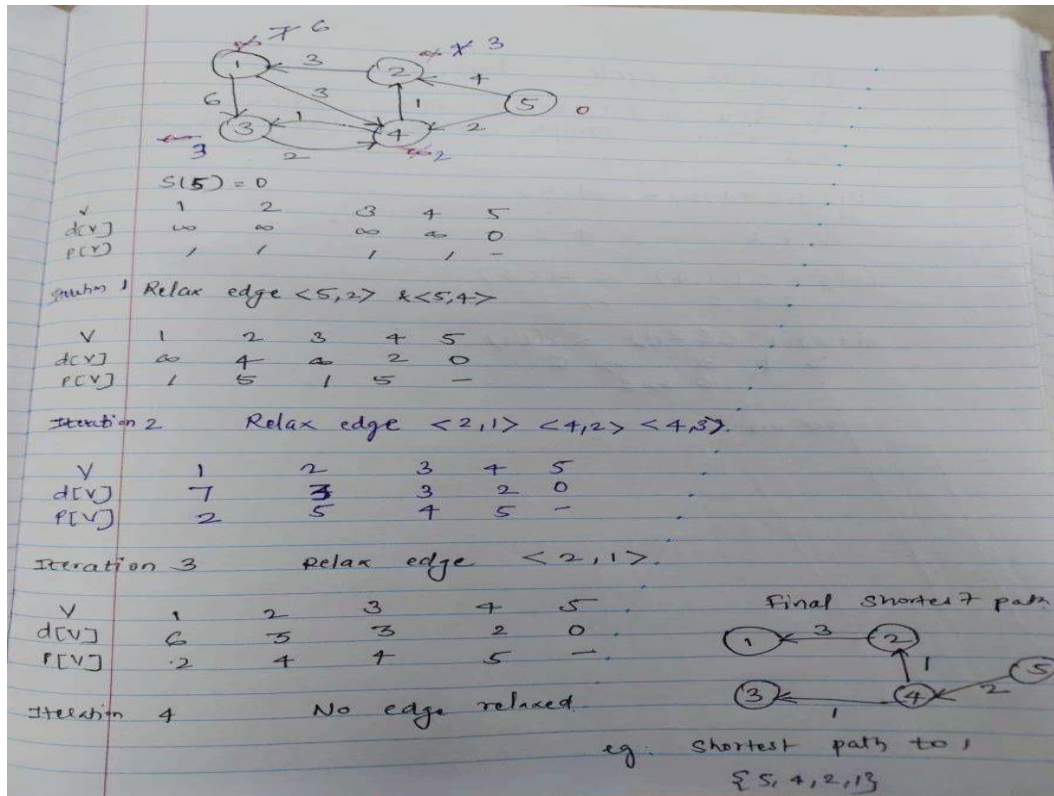 ∞ 7 6
∞ 4 3
1 3 2 4
6 3 1 5 0
3 1 4 2
∞ 3 2 ∞ 2
S(5) = 0
V 1 2 3 4 5
d[V] ∞ ∞ ∞ ∞ 0
P[V] / / / / -
Iteration 1 Relax edge <5,2> &<5,4>
V 1 2 3 4 5
d[V] ∞ 4 ∞ 2 0
P[V] / 5 / 5 -
Iteration 2 Relax edge <2,1> <4,2> <4,3>.
V 1 2 3 4 5
d[V] 7 3 3 2 0
P[V] 2 5 4 5 -
Iteration 3 Relax edge <2,1>.
V 1 2 3 4 5
d[V] 6 3 3 2 0
P[V] 2 4 4 5 -
Iteration 4 No edge relaxed
Final shortest path
1 3 2
1 5
3 1 4 2
eg: Shortest path to 1
{5, 4, 2, 1}